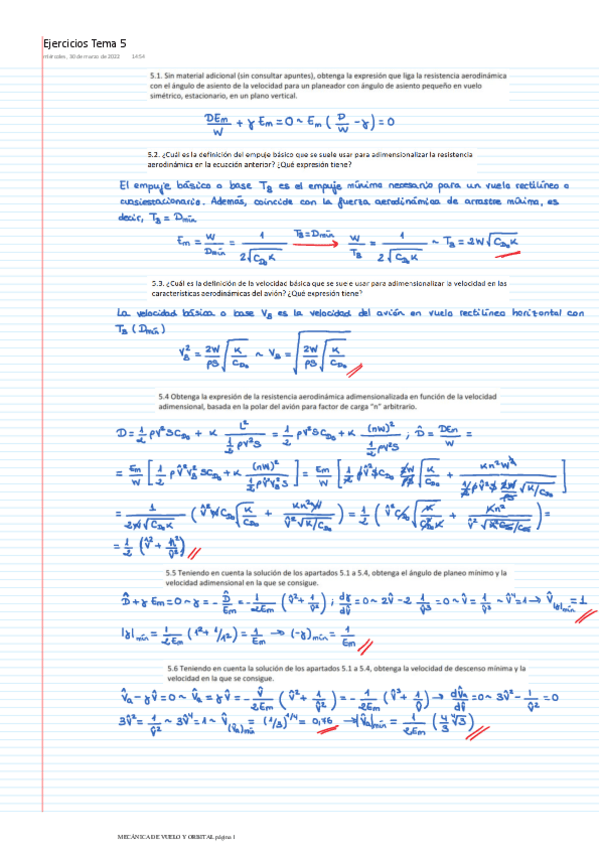 Ejercicios Tema 5
miércoles, 30 de marzo de 2022 14:54
5.1. Sin material adicional (sin consultar apuntes), obtenga la expresión que liga la resistencia aerodinámica
con el ángulo de asiento de la velocidad para un planeador con ángulo de asiento pequeño en vuelo
simétrico, estacionario, en un plano vertical.
DEm/W + γ Em = 0 ~ Em (D/W - γ) = 0
5.2. ¿Cuál es la definición del empuje básico que se suele usar para adimensionalizar la resistencia
aerodinámica en la ecuación anterior? ¿Qué expresión tiene?
El empuje básico o base T_B es el empuje mínimo necesario para un vuelo rectilíneo o
cuasiestacionario. Además, coincide con la fuerza aerodinámica de arrastre mínima, es
decir, T_B = Dmín
Em = W/Dmín = 1/(2√(C_D0 K)) T_B = Dmín → W/T_B = 1/(2√(C_D0 K)) ~ T_B = 2W√(C_D0 K)
5.3. ¿Cuál es la definición de la velocidad básica que se suele usar para adimensionalizar la velocidad en las
características aerodinámicas del avión? ¿Qué expresión tiene?
La velocidad básica o base V_B es la velocidad del avión en vuelo rectilíneo horizontal con
T_B (Dmín)
V_B² = 2W/ρS √(K/C_D0) ~ V_B = √(2W/ρS √(K/C_D0))
5.4 Obtenga la expresión de la resistencia aerodinámica adimensionalizada en función de la velocidad
adimensional, basada en la polar del avión para factor de carga "n" arbitrario.
D = 1/2 ρV²SC_D0 + K L²/(1/2 ρV²S) = 1/2 ρV²SC_D0 + K (nW)²/(1/2 ρV²S) ; D̂ = DEm/W =
= Em/W [1/2 ρV̂²V_B² SC_D0 + K (nW)²/(1/2 ρV̂²V_B²S)] = Em/W [1/2 ρV̂²SC_D0 2W/ρS √(K/C_D0) + Kn²W²/(1/2 ρV̂²S 2W/ρS √(K/C_D0))]
= 1/(2W√(C_D0 K)) (V̂²WC_D0√(K/C_D0) + Kn²W/(V̂²√(K/C_D0))) = 1/2 (V̂²C_D0√(K/(C_D0²K)) + Kn²/(V̂²√(K²C_D0/C_D0))) =
= 1/2 (V̂² + n²/V̂²)
5.5 Teniendo en cuenta la solución de los apartados 5.1 a 5.4, obtenga el ángulo de planeo mínimo y la
velocidad adimensional en la que se consigue.
D̂ + γ Em = 0 ~ γ = - D̂/Em = - 1/2Em (V̂² + 1/V̂²) ; dγ/dV̂ = 0 ~ 2V̂ - 2 1/V̂³ = 0 ~ V̂ = 1/V̂³ ~ V̂⁴ = 1 → V̂_|γ|mín = 1
|γ|mín = 1/2Em (1² + 1/1²) = 1/Em → (-γ)mín = 1/Em
5.6 Teniendo en cuenta la solución de los apartados 5.1 a 5.4, obtenga la velocidad de descenso mínima y la
velocidad en la que se consigue.
V̂a - γV̂ = 0 ~ V̂a = γV̂ = - V̂/2Em (V̂² + 1/V̂²) = - 1/2Em (V̂³ + 1/V̂) → dV̂a/dV̂ = 0 ~ 3V̂² - 1/V̂² = 0
3V̂² = 1/V̂² ~ 3V̂⁴ = 1 ~ V̂_(V̂a)mín = (1/3)^1/4 = 0,76 → |V̂a|mín = 1/2Em (4/3 ∜3)
MECÁNICA DE VUELO Y ORBITAL página 1